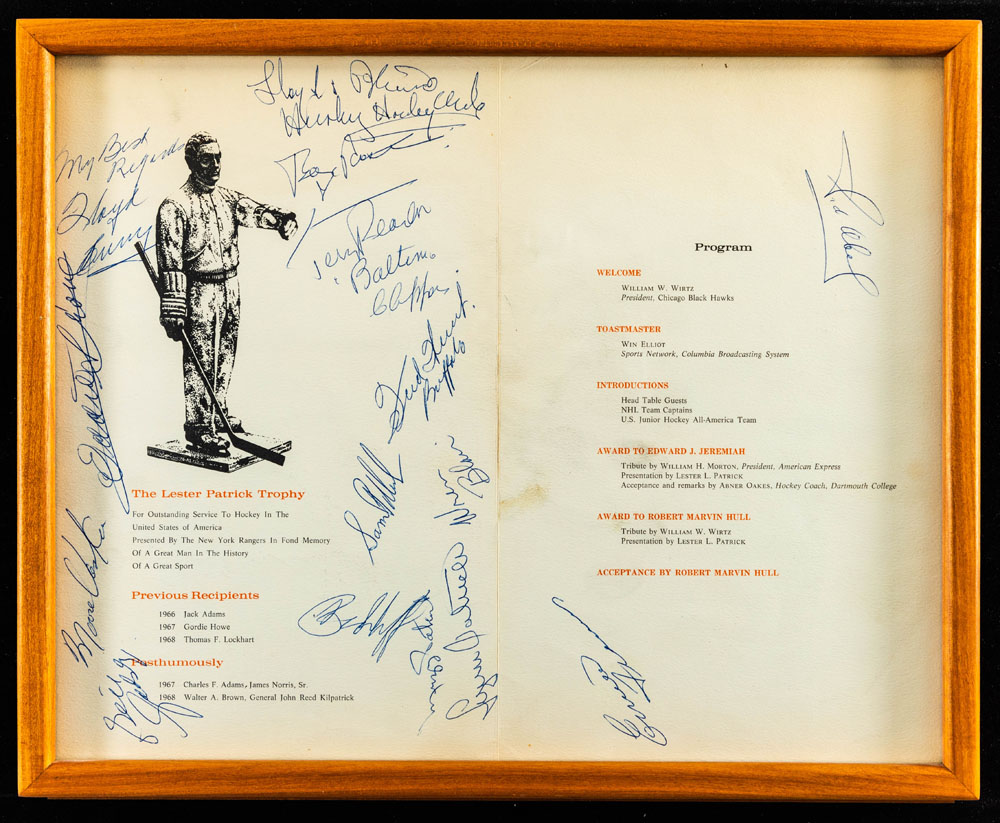 My Best
Regards
Lloyd
Hockey Club
Baltimore
Clippers
Fred Hunt
Buffalo
Wren Blair
Sid Abel
The Lester Patrick Trophy
For Outstanding Service To Hockey In The
United States of America
Presented By The New York Rangers In Fond Memory
Of A Great Man In The History
Of A Great Sport
Previous Recipients
1966 Jack Adams
1967 Gordie Howe
1968 Thomas F. Lockhart
Posthumously
1967 Charles F. Adams, James Norris, Sr.
1968 Walter A. Brown, General John Reed Kilpatrick
Program
WELCOME
WILLIAM W. WIRTZ
President, Chicago Black Hawks
TOASTMASTER
WIN ELLIOT
Sports Network, Columbia Broadcasting System
INTRODUCTIONS
Head Table Guests
NHL Team Captains
U.S. Junior Hockey All-America Team
AWARD TO EDWARD J. JEREMIAH
Tribute by WILLIAM H. MORTON, President, American Express
Presentation by LESTER L. PATRICK
Acceptance and remarks by ABNER OAKES, Hockey Coach, Dartmouth College
AWARD TO ROBERT MARVIN HULL
Tribute by WILLIAM W. WIRTZ
Presentation by LESTER L. PATRICK
ACCEPTANCE BY ROBERT MARVIN HULL